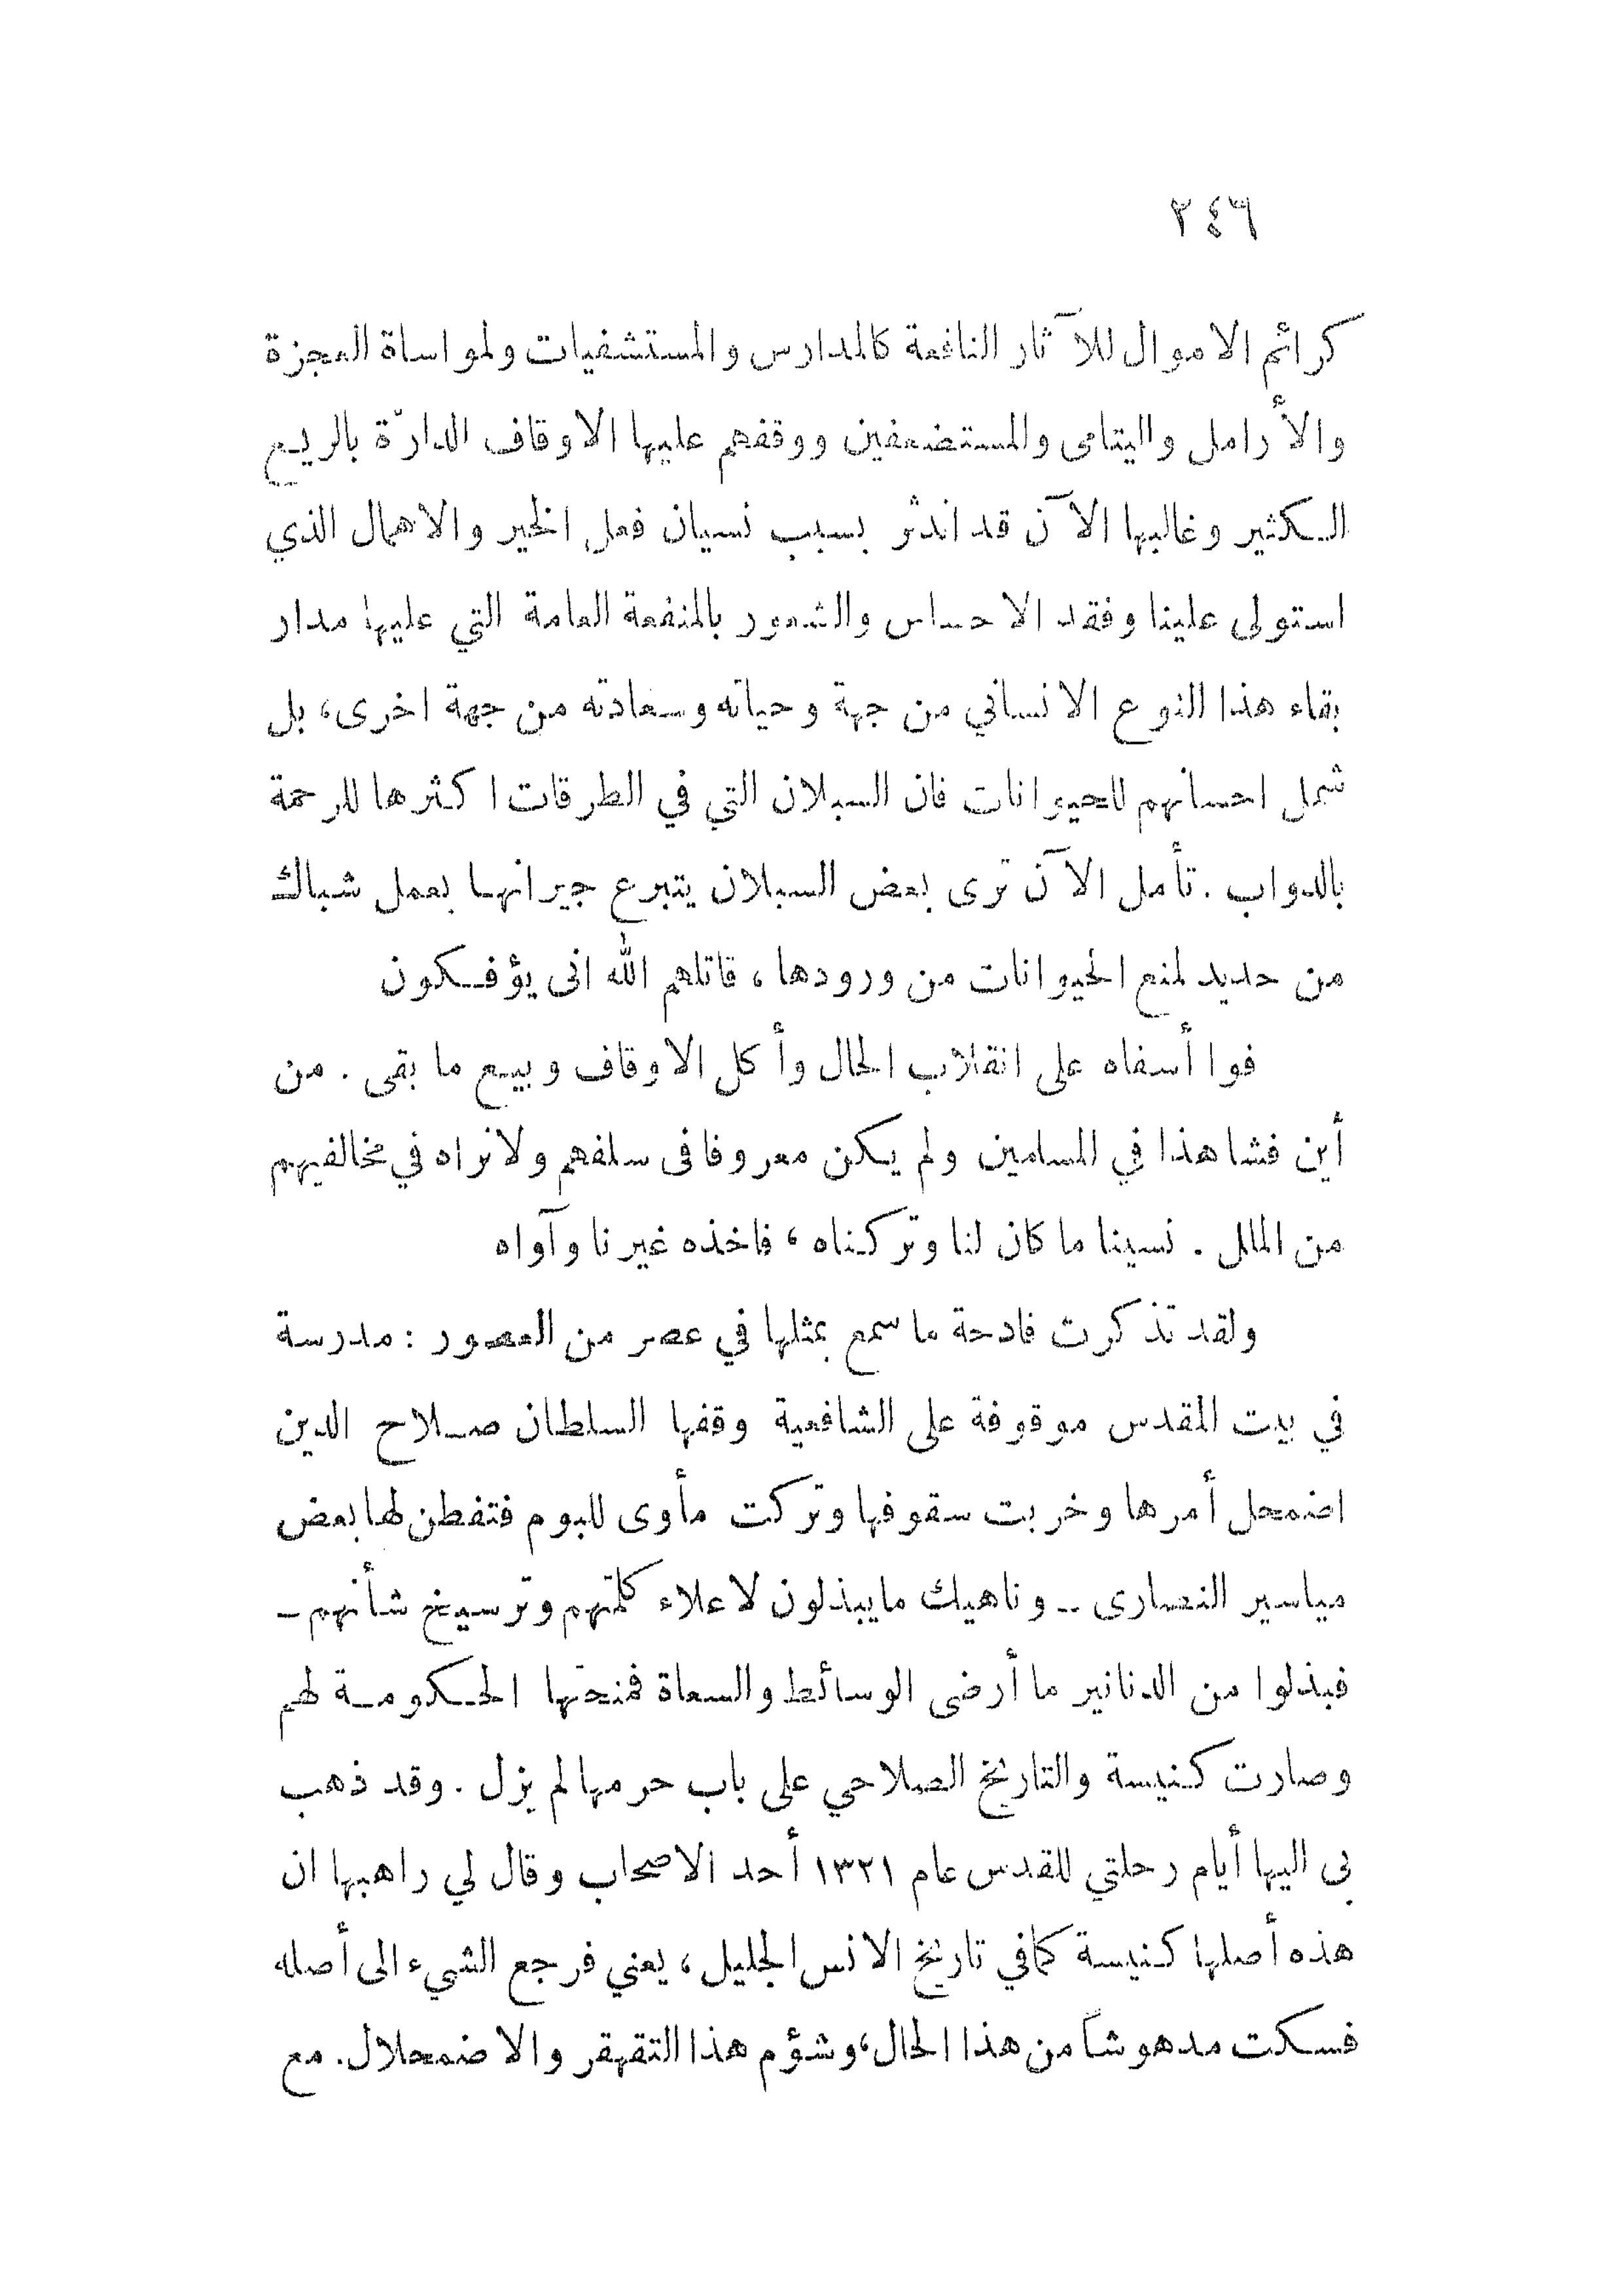 ٢٤٦
كرائم الاموال للآثار النافعة كالمدارس والمستشفيات ولمواساة العجزة
والأرامل واليتامى والمستضعفين ووقفهم عليها الاوقاف الدارّة بالريع
الكثير وغالبها الآن قد اندثر بسبب نسيان فعل الخير والاهمال الذي
استولى علينا وفقد الاحساس والشعور بالمنفعة العامة التي عليها مدار
بقاء هذا النوع الانساني من جهة وحياته وسعادته من جهة اخرى، بل
شمل احسانهم للحيوانات فان السبلان التي في الطرقات اكثرها للرحمة
بالدواب . تأمل الآن ترى بعض السبلان يتبرع جيرانها بعمل شباك
من حديد لمنع الحيوانات من ورودها ، قاتلهم الله انى يؤفكون
فوا أسفاه على انقلاب الحال وأكل الاوقاف وبيع ما بقى . من
أين فشا هذا في المسلمين ولم يكن معروفا فى سلفهم ولا نراه في مخالفيهم
من الملل . نسينا ما كان لنا وتركناه ، فاخذه غيرنا وآواه
ولقد تذكرت فادحة ما سمع بمثلها في عصر من العصور : مدرسة
في بيت المقدس موقوفة على الشافعية وقفها السلطان صلاح الدين
اضمحل أمرها وخربت سقوفها وتركت مأوى للبوم فتفطن لها بعض
مياسير النصارى – وناهيك ما يبذلون لاعلاء كلمتهم وترسيخ شأنهم –
فبذلوا من الدنانير ما أرضى الوسائط والسعاة فمنحتها الحكومة لهم
وصارت كنيسة والتاريخ الصلاحي على باب حرمها لم يزل . وقد ذهب
بى اليها أيام رحلتي للقدس عام ١٣٢١ أحد الاصحاب وقال لي راهبها ان
هذه أصلها كنيسة كما في تاريخ الانس الجليل ، يعني فرجع الشيء الى أصله
فسكت مدهوشاً من هذا الحال، وشؤم هذا التقهقر والاضمحلال. مع